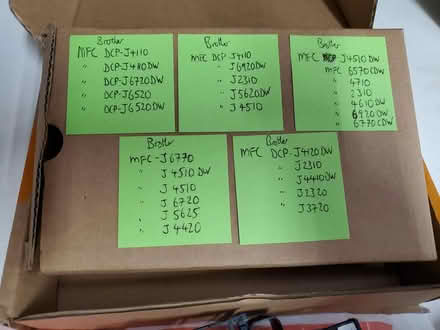 Brother
MFC DCP-J4110
" DCP-J4110DW
" DCP-J6720DW
" DCP-J6520
" DCP-J6520DW
Brother
MFC DCP-J4110
" J6920DW
" J2310
" J5620DW
" J4510
Brother
MFC J4510DW
MFC 6570CDW
" 4710
" 2310
" 4610DW
" 6920DW
" 6770CDW
Brother
MFC-J6770
" J4510DW
" J4510
" J6720
" J5625
" J4420
Brother
MFC DCP-J4120DW
" J2310
" J4410DW
" J2320
" J3720